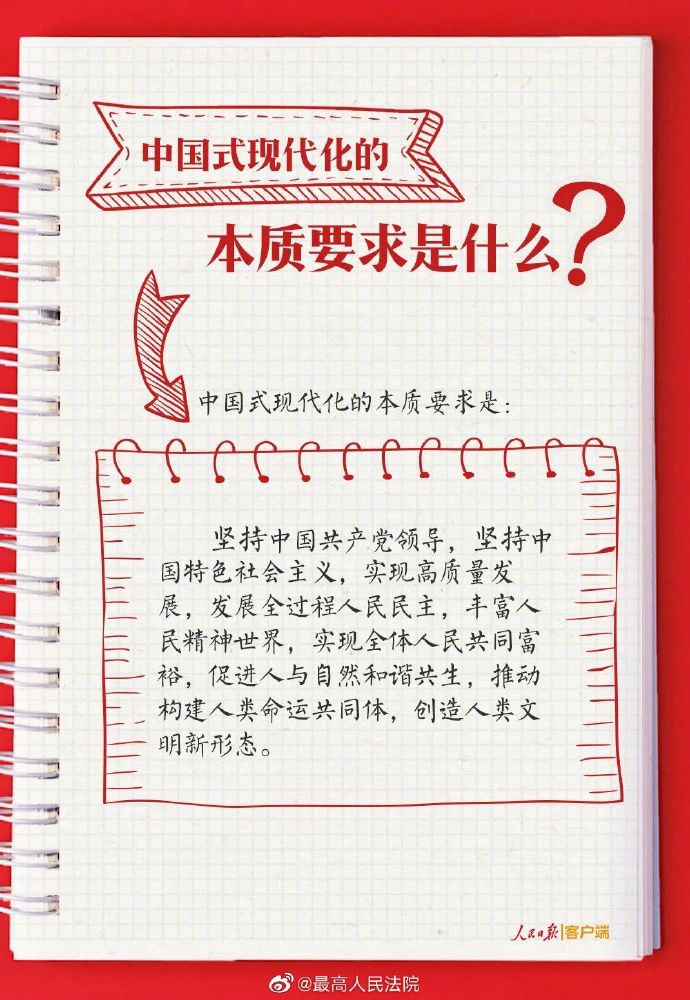 中国式现代化的
本质要求是什么？
中国式现代化的本质要求是：
坚持中国共产党领导，坚持中
国特色社会主义，实现高质量发
展，发展全过程人民民主，丰富人
民精神世界，实现全体人民共同富
裕，促进人与自然和谐共生，推动
构建人类命运共同体，创造人类文
明新形态。
人民日报|客户端
@最高人民法院